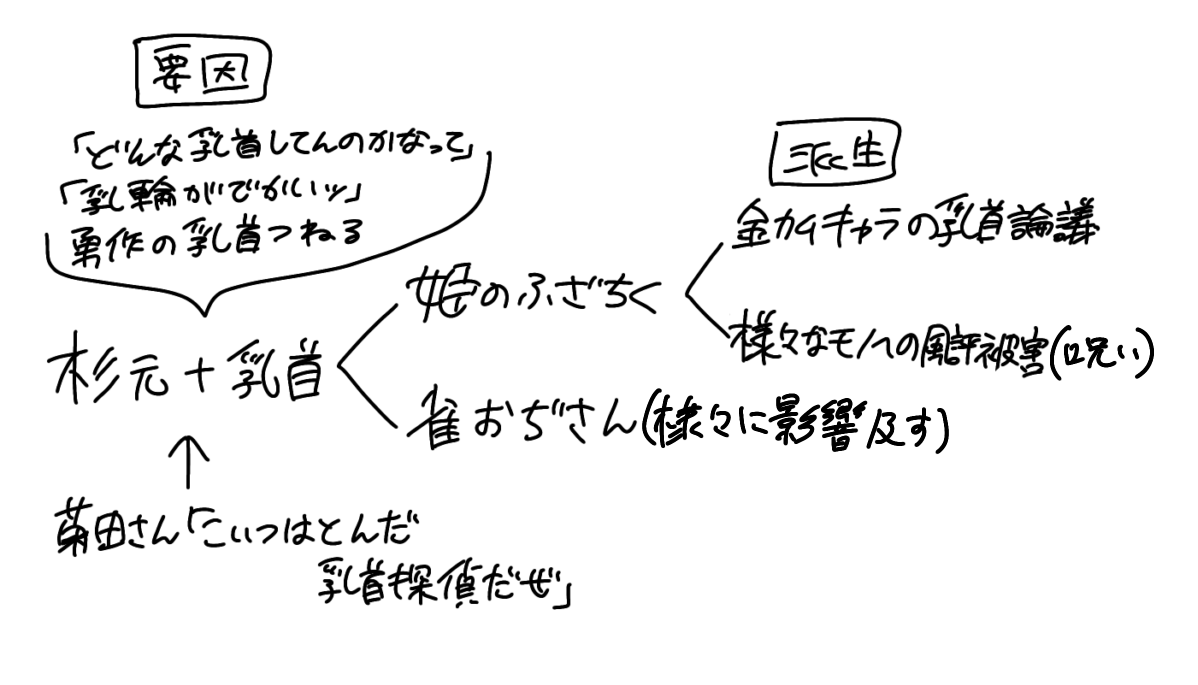 要因
「どんな乳首してんのかなって」
「乳輪がでかいッ」
勇作の乳首つねる
杉元+乳首
菊田さん「こいつはとんだ
乳首探偵だぜ」
姫のふざちく
雀おぢさん(様々に影響及す)
派生
金カムキャラの乳首論議
様々なモノへの風評被害(呪い)